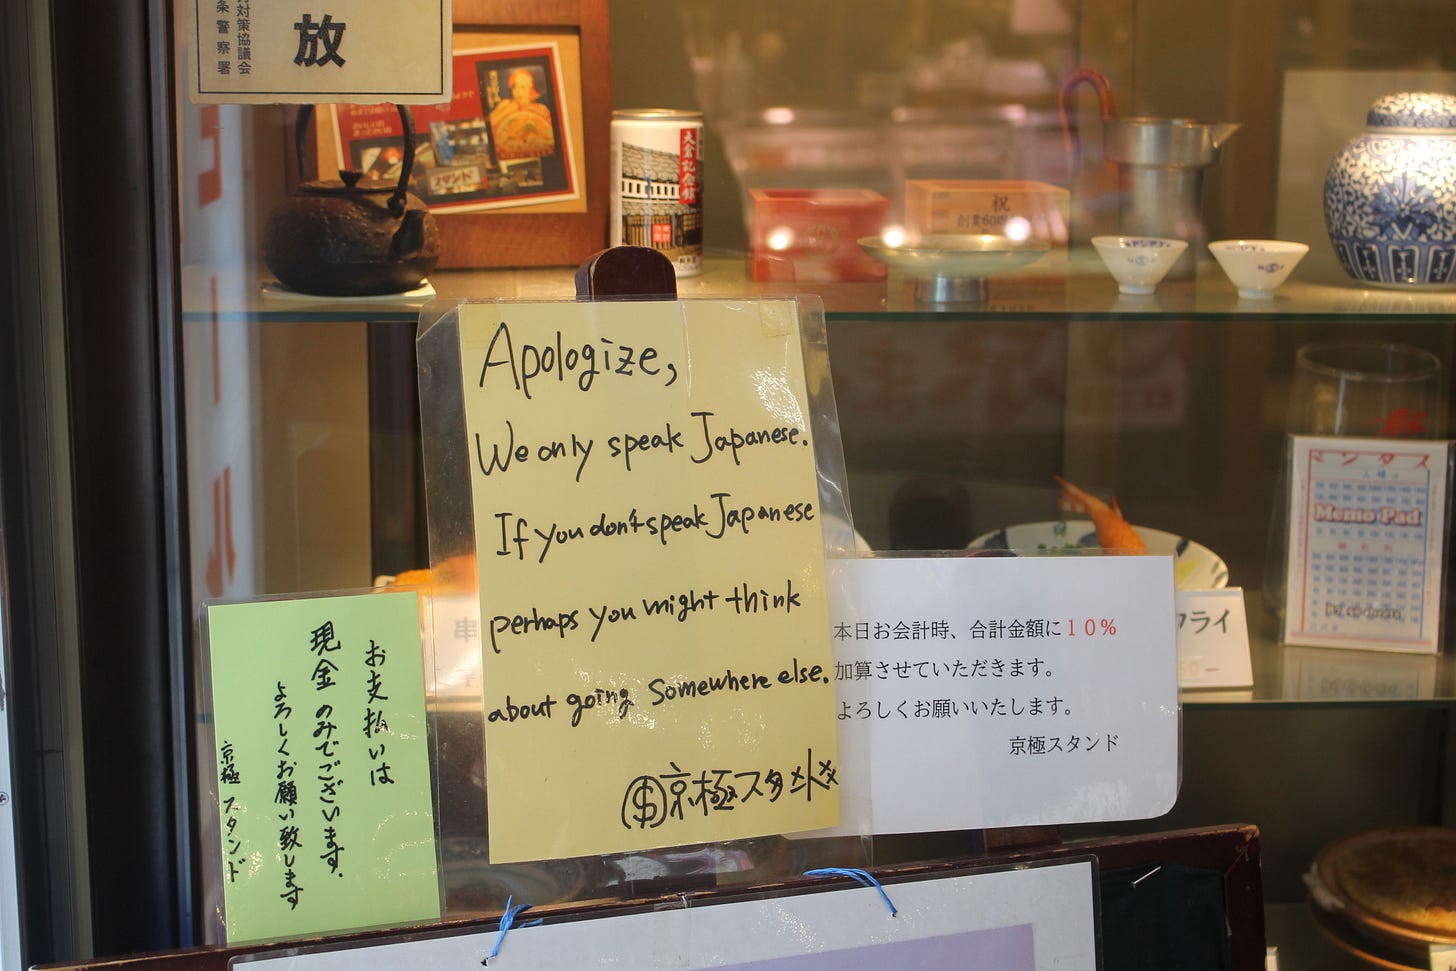 対策協議会
条警察署
放
大倉記念館
祝
Apologize,
We only speak Japanese.
If you don't speak Japanese
perhaps you might think
about going somewhere else.
京極スタンド
お支払いは
現金のみでございます.
よろしくお願い致します
京極スタンド
本日お会計時、合計金額に10%
加算させていただきます。
よろしくお願いいたします。
京極スタンド
フライ
串
Memo Pad